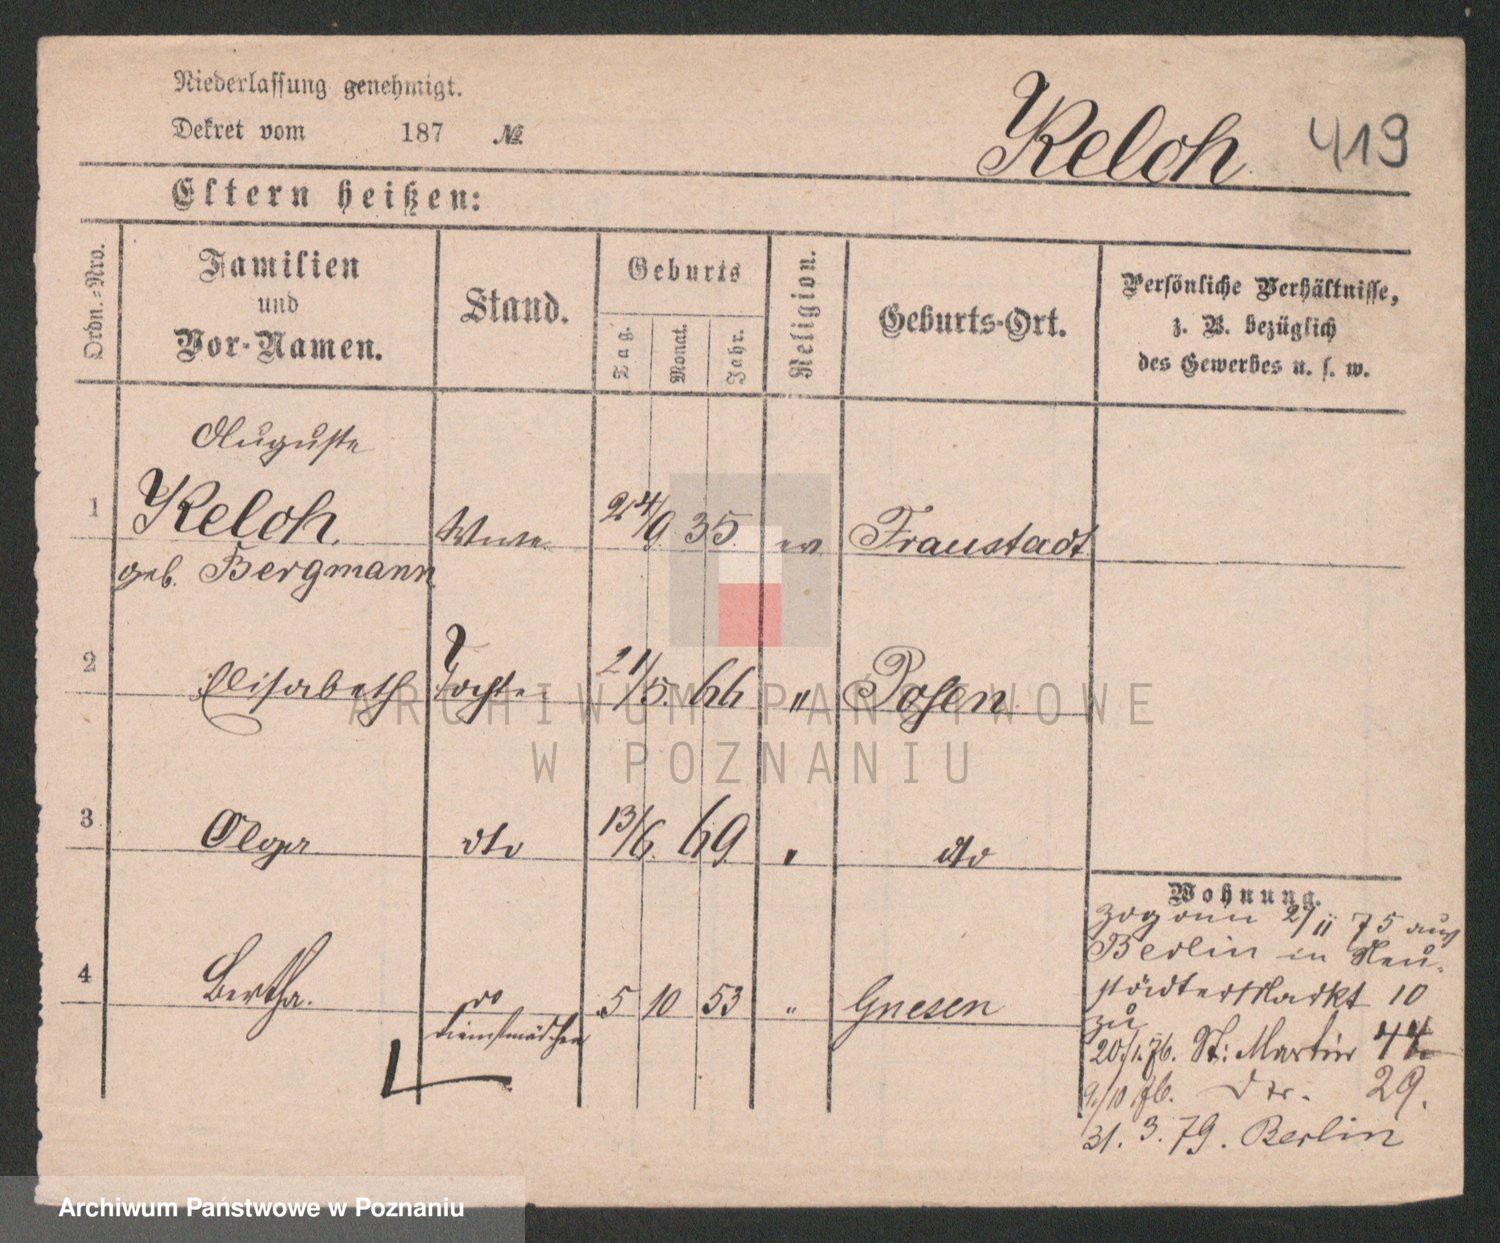 Niederlassung genehmigt.
Dekret vom 187 №
Kelch 419
Eltern heißen:
Ordn.=Nro.
Familien
und
Vor-Namen.
Stand.
Geburts
Tag.
Monat.
Jahr.
Religion.
Geburts-Ort.
Persönliche Verhältnisse,
z. B. bezüglich
des Gewerbes u. s. w.
Auguste
1 Kelch. Wwe 24/9. 35. ev Fraustadt
geb. Bergmann
2 Elisabeth Tochter 21/5. 66 " Posen
3 Olga dto 13/6. 69. " dto
Wohnung.
zog am 2/11 75 aus
Berlin in Neu-
städter Markt 10
zu
4 Bertha. 5 10 53 " Gnesen
Dienstmädchen
20/1. 76. St: Martin 44
9/10 76. 29.
31. 3. 79. Berlin
ARCHIWUM PAŃSTWOWE
W POZNANIU
Archiwum Państwowe w Poznaniu